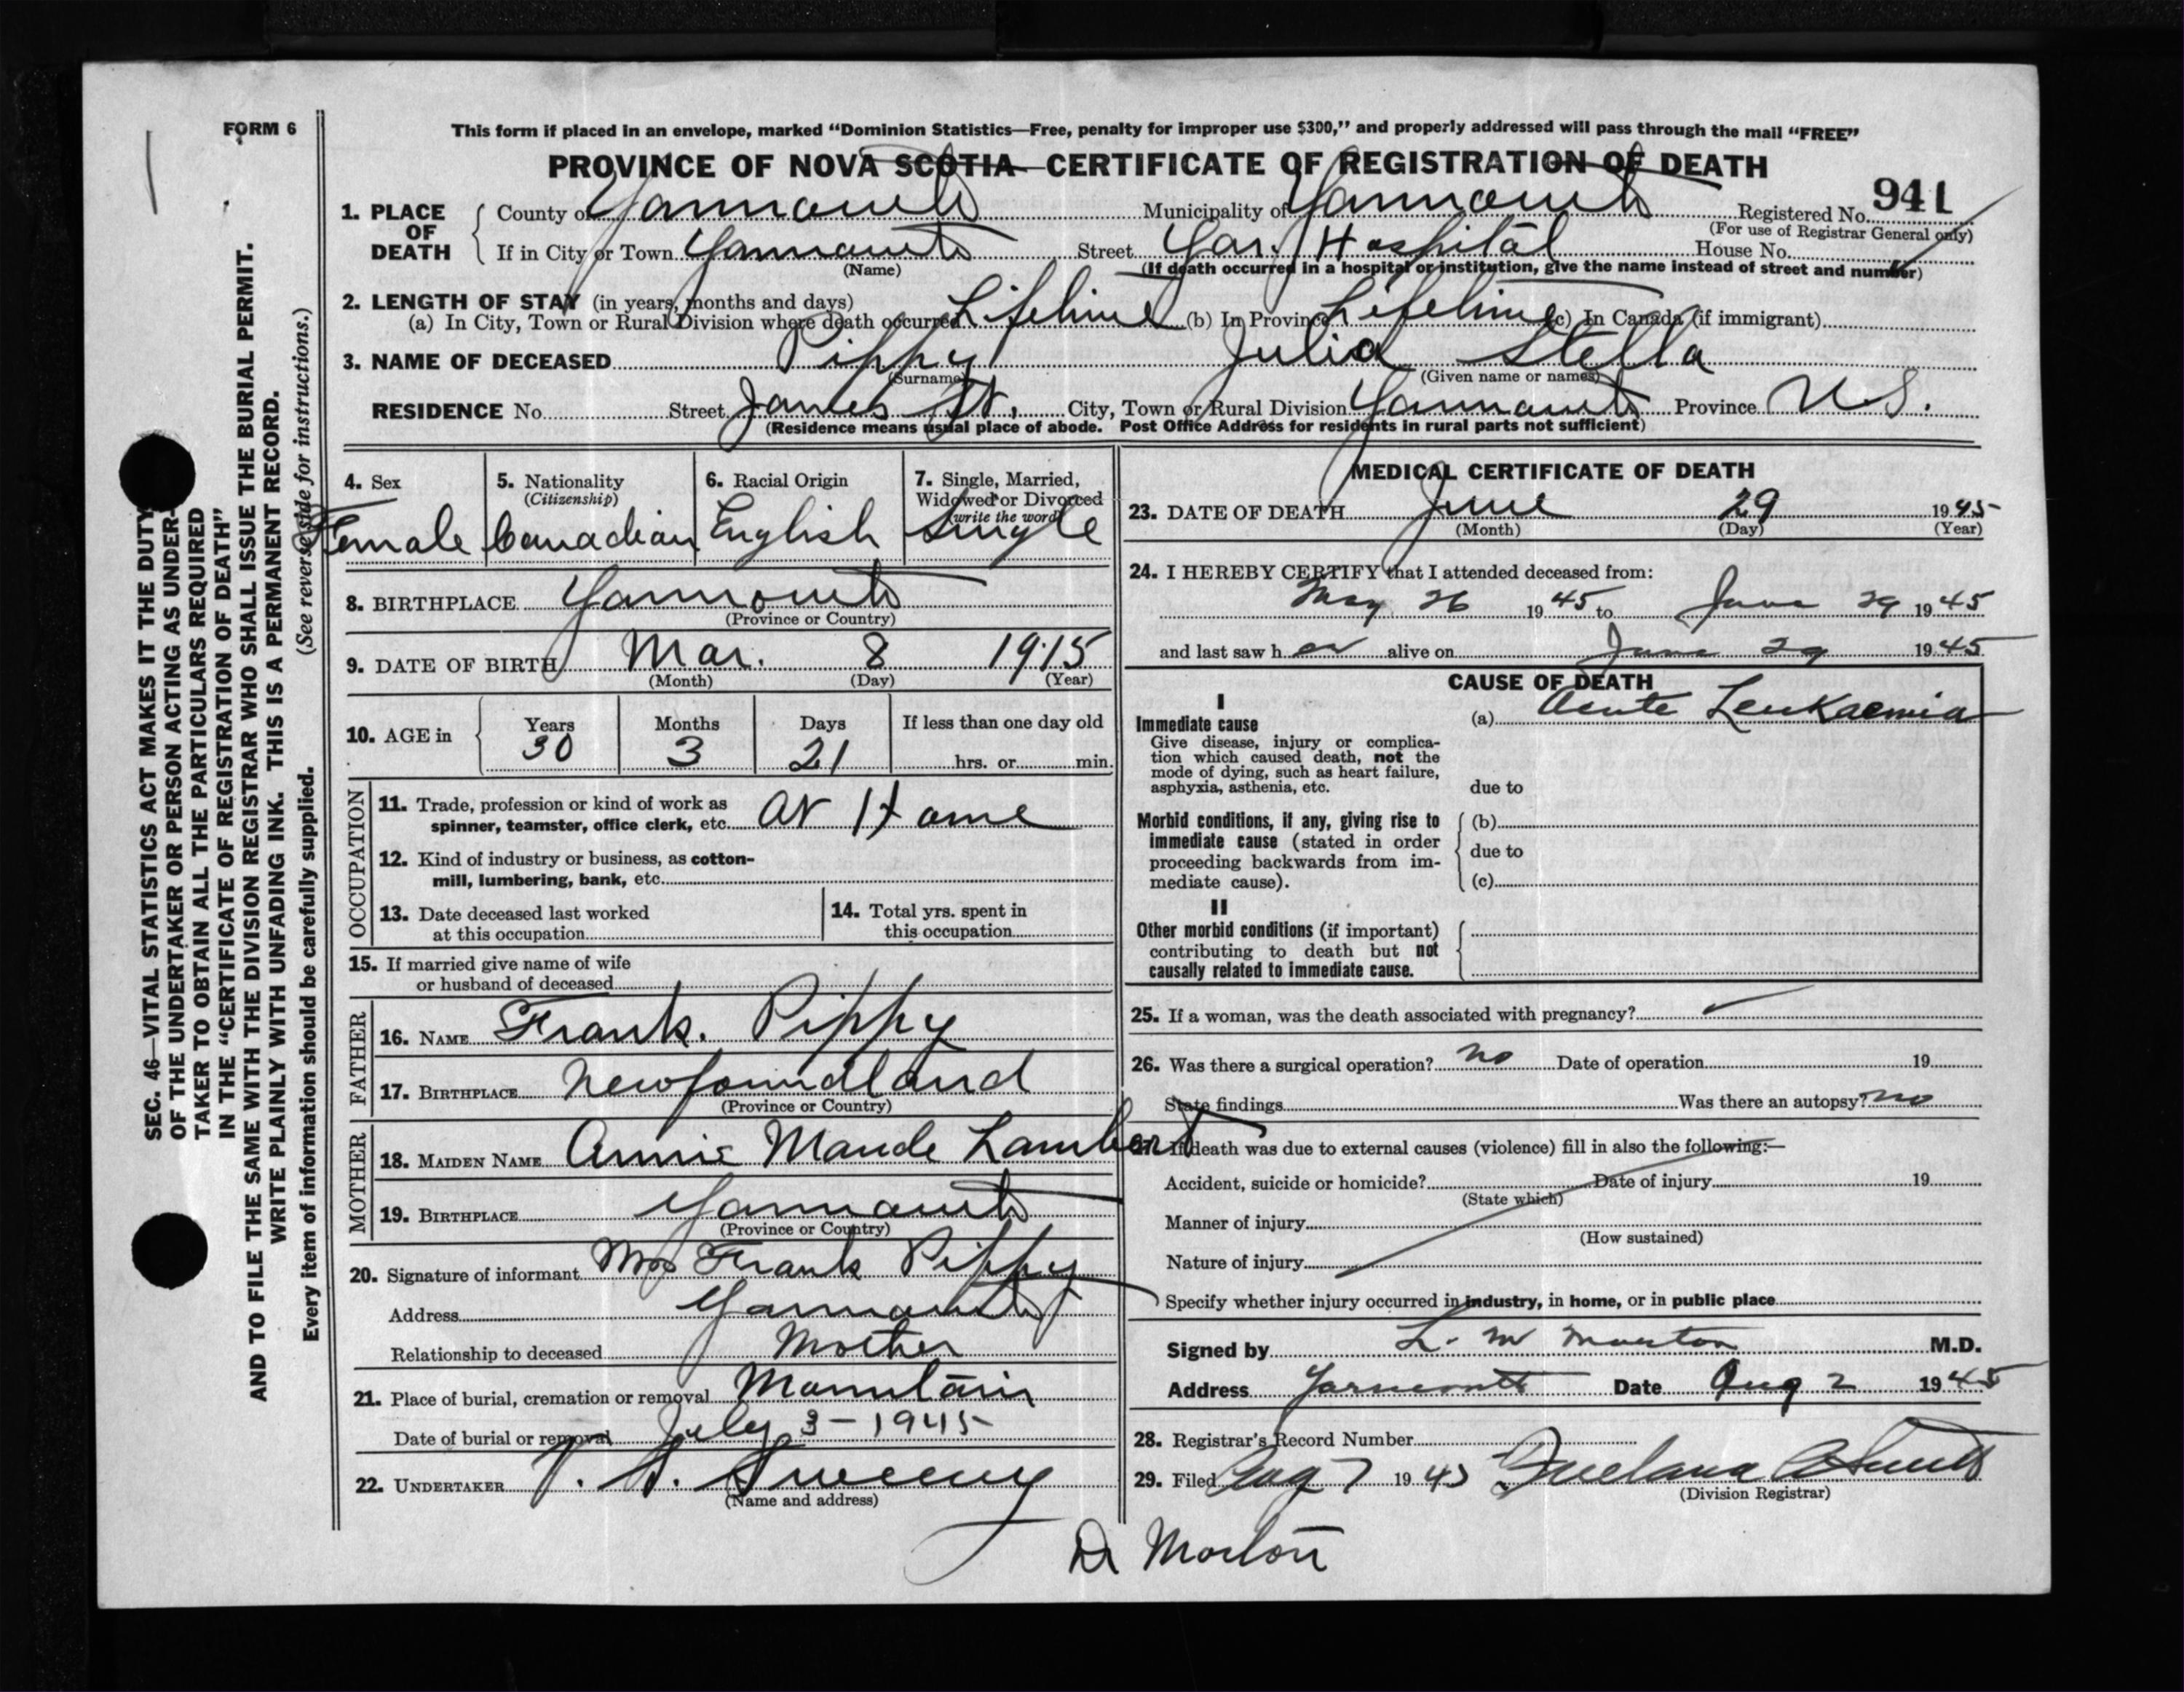 FORM 6
This form if placed in an envelope, marked "Dominion Statistics—Free, penalty for improper use $300," and properly addressed will pass through the mail "FREE"
PROVINCE OF NOVA SCOTIA—CERTIFICATE OF REGISTRATION OF DEATH
941
1. PLACE OF DEATH County of Yarmouth Municipality of Yarmouth Registered No.
(For use of Registrar General only)
If in City or Town Yarmouth Street Yar. Hospital House No.
(Name) (If death occurred in a hospital or institution, give the name instead of street and number)
2. LENGTH OF STAY (in years, months and days)
(a) In City, Town or Rural Division where death occurred Lifetime (b) In Province Lifetime (c) In Canada (if immigrant)
3. NAME OF DECEASED Pippy Julia Stella
(Surname) (Given name or names)
RESIDENCE No. Street James St. City, Town or Rural Division Yarmouth Province N.S.
(Residence means usual place of abode. Post Office Address for residents in rural parts not sufficient)
4. Sex Female
5. Nationality (Citizenship) Canadian
6. Racial Origin English
7. Single, Married, Widowed or Divorced (write the word) Single
8. BIRTHPLACE Yarmouth
(Province or Country)
9. DATE OF BIRTH Mar. 8 1915
(Month) (Day) (Year)
10. AGE in Years Months Days If less than one day old
30 3 21 hrs. or min.
OCCUPATION
11. Trade, profession or kind of work as
spinner, teamster, office clerk, etc. At Home
12. Kind of industry or business, as cotton-
mill, lumbering, bank, etc.
13. Date deceased last worked
at this occupation
14. Total yrs. spent in
this occupation
15. If married give name of wife
or husband of deceased
FATHER
16. NAME Frank. Pippy
17. BIRTHPLACE Newfoundland
(Province or Country)
MOTHER
18. MAIDEN NAME Annie Maude Lambert
19. BIRTHPLACE Yarmouth
(Province or Country)
20. Signature of informant Mrs Frank Pippy
Address Yarmouth
Relationship to deceased Mother
21. Place of burial, cremation or removal Mountain
Date of burial or removal July 3 - 1945
22. UNDERTAKER V. S. Sweeny
(Name and address)
MEDICAL CERTIFICATE OF DEATH
23. DATE OF DEATH June 29 1945
(Month) (Day) (Year)
24. I HEREBY CERTIFY that I attended deceased from:
May 26 1945 to June 29 1945
and last saw her alive on June 29 1945
CAUSE OF DEATH
I
Immediate cause (a) Acute Leukaemia
Give disease, injury or complica-
tion which caused death, not the
mode of dying, such as heart failure,
asphyxia, asthenia, etc. due to
Morbid conditions, if any, giving rise to (b)
immediate cause (stated in order due to
proceeding backwards from im-
mediate cause). (c)
II
Other morbid conditions (if important)
contributing to death but not
causally related to immediate cause.
25. If a woman, was the death associated with pregnancy?
26. Was there a surgical operation? no Date of operation 19
State findings Was there an autopsy? no
27. If death was due to external causes (violence) fill in also the following:—
Accident, suicide or homicide? Date of injury 19
(State which)
Manner of injury
(How sustained)
Nature of injury
Specify whether injury occurred in industry, in home, or in public place
Signed by L. M Morton M.D.
Address Yarmouth Date Aug 2 1945
28. Registrar's Record Number
29. Filed Aug 7 1945
(Division Registrar)
Dr Morton
SEC. 46—VITAL STATISTICS ACT MAKES IT THE DUTY
OF THE UNDERTAKER OR PERSON ACTING AS UNDER-
TAKER TO OBTAIN ALL THE PARTICULARS REQUIRED
IN THE "CERTIFICATE OF REGISTRATION OF DEATH"
AND TO FILE THE SAME WITH THE DIVISION REGISTRAR WHO SHALL ISSUE THE BURIAL PERMIT.
WRITE PLAINLY WITH UNFADING INK. THIS IS A PERMANENT RECORD.
Every item of information should be carefully supplied. (See reverse side for instructions.)